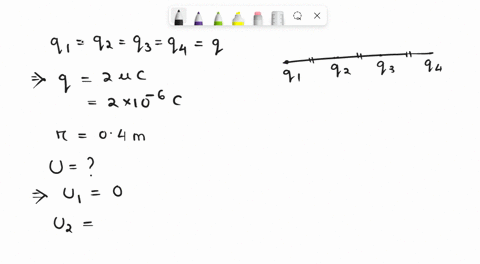 q₁ = q₂ = q₃ = q₄ = q
⇒ q = 2 μC
= 2×10⁻⁶ C
r = 0.4 m
U = ?
⇒ U₁ = 0
U₂ =
q₁ q₂ q₃ q₄